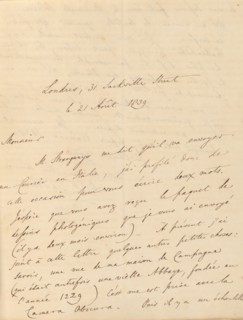 Londres, 31 Sackville Street
le 21 Août 1839
Monsieur
M. me dit qu'il va envoyer
un Courrier en Italie; j'ai profité donc de
cette occasion pour vous écrire deux mots.
J'espère que vous avez reçu le paquet de
dessins photogéniques que je vous ai envoyé
(il y a deux mois environ). A présent j'ai
joint à cette lettre quelques autres petites choses,
savoir, une vue de ma maison de Campagne
(qui était autrefois une vieille Abbaye, fondée en
l'année 1229) c'est une vue prise avec la
Camera Obscura. Puis il y a un échantillon